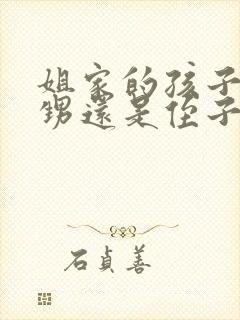 姐家的孩子
甥還是侄子
石貞善